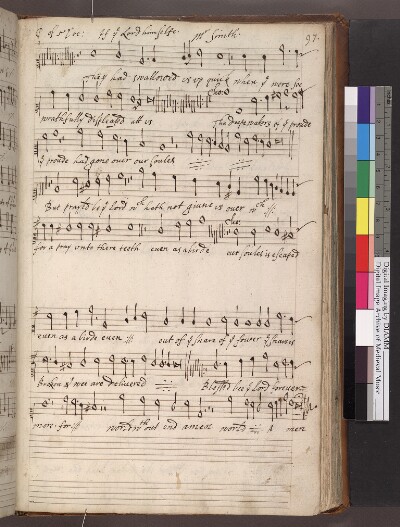 If yͤ Lord himselfe Mʳ Smith: 97.
They had swallowed us up quick when yͤ were soe
wrathfully displeased att us Cho: The deepe waters of yͤ proude
yͤ proude had gone over our soules
But praysed be yͤ Lord wᶜʰ hath not given us over
for a pray unto there teeth even as a birde Cho: our soules is escaped
even as a birde even out of yͤ snare of yͤ fowler yͤ snare is
broken & wee are delivered Blessed bee yͤ Lord forever
more for world wᵗʰout end amen world A men
Digital Imaging by DIAMM
Digital Image Archive of Medieval Music